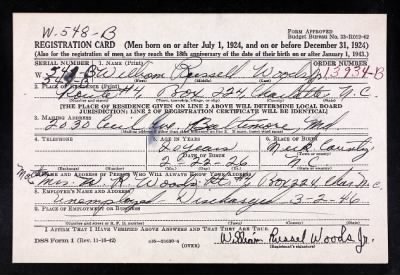 W-548-B
FORM APPROVED
Budget Bureau No. 33-R012-42
REGISTRATION CARD (Men born on or after July 1, 1924, and on or before December 31, 1924)
(Also for the registration of men as they reach the 18th anniversary of the date of their birth on or after January 1, 1943.)
SERIAL NUMBER 1. NAME (Print) ORDER NUMBER
W 548-B William Russell Woods Jr. 13,934-B
(First) (Middle) (Last)
2. PLACE OF RESIDENCE (Print)
Route #4 Box 224 Charlotte, N.C.
(Number and street) (Town, township, village, or city) (County) (State)
[THE PLACE OF RESIDENCE GIVEN ON LINE 2 ABOVE WILL DETERMINE LOCAL BOARD
JURISDICTION; LINE 2 OF REGISTRATION CERTIFICATE WILL BE IDENTICAL]
3. MAILING ADDRESS
2030 Md
4. TELEPHONE 5. AGE IN YEARS 6. PLACE OF BIRTH
20 years Meck. County
DATE OF BIRTH (Town or county)
2-22-26 N.C.
(Exchange) (Number) (Mo.) (Day) (Yr.) (State or country)
7. NAME AND ADDRESS OF PERSON WHO WILL ALWAYS KNOW YOUR ADDRESS
Mother Mrs. W. R. Woods Rt #4 Box 224 Char. N.C.
8. EMPLOYER'S NAME AND ADDRESS
Unemployed Discharged 3-2-46
9. PLACE OF EMPLOYMENT OR BUSINESS
(Number and street or R. F. D. number) (Town) (County) (State)
I AFFIRM THAT I HAVE VERIFIED ABOVE ANSWERS AND THAT THEY ARE TRUE.
DSS Form 1 (Rev. 11-16-42) (OVER) William Russel Woods Jr.
(Registrant's signature)